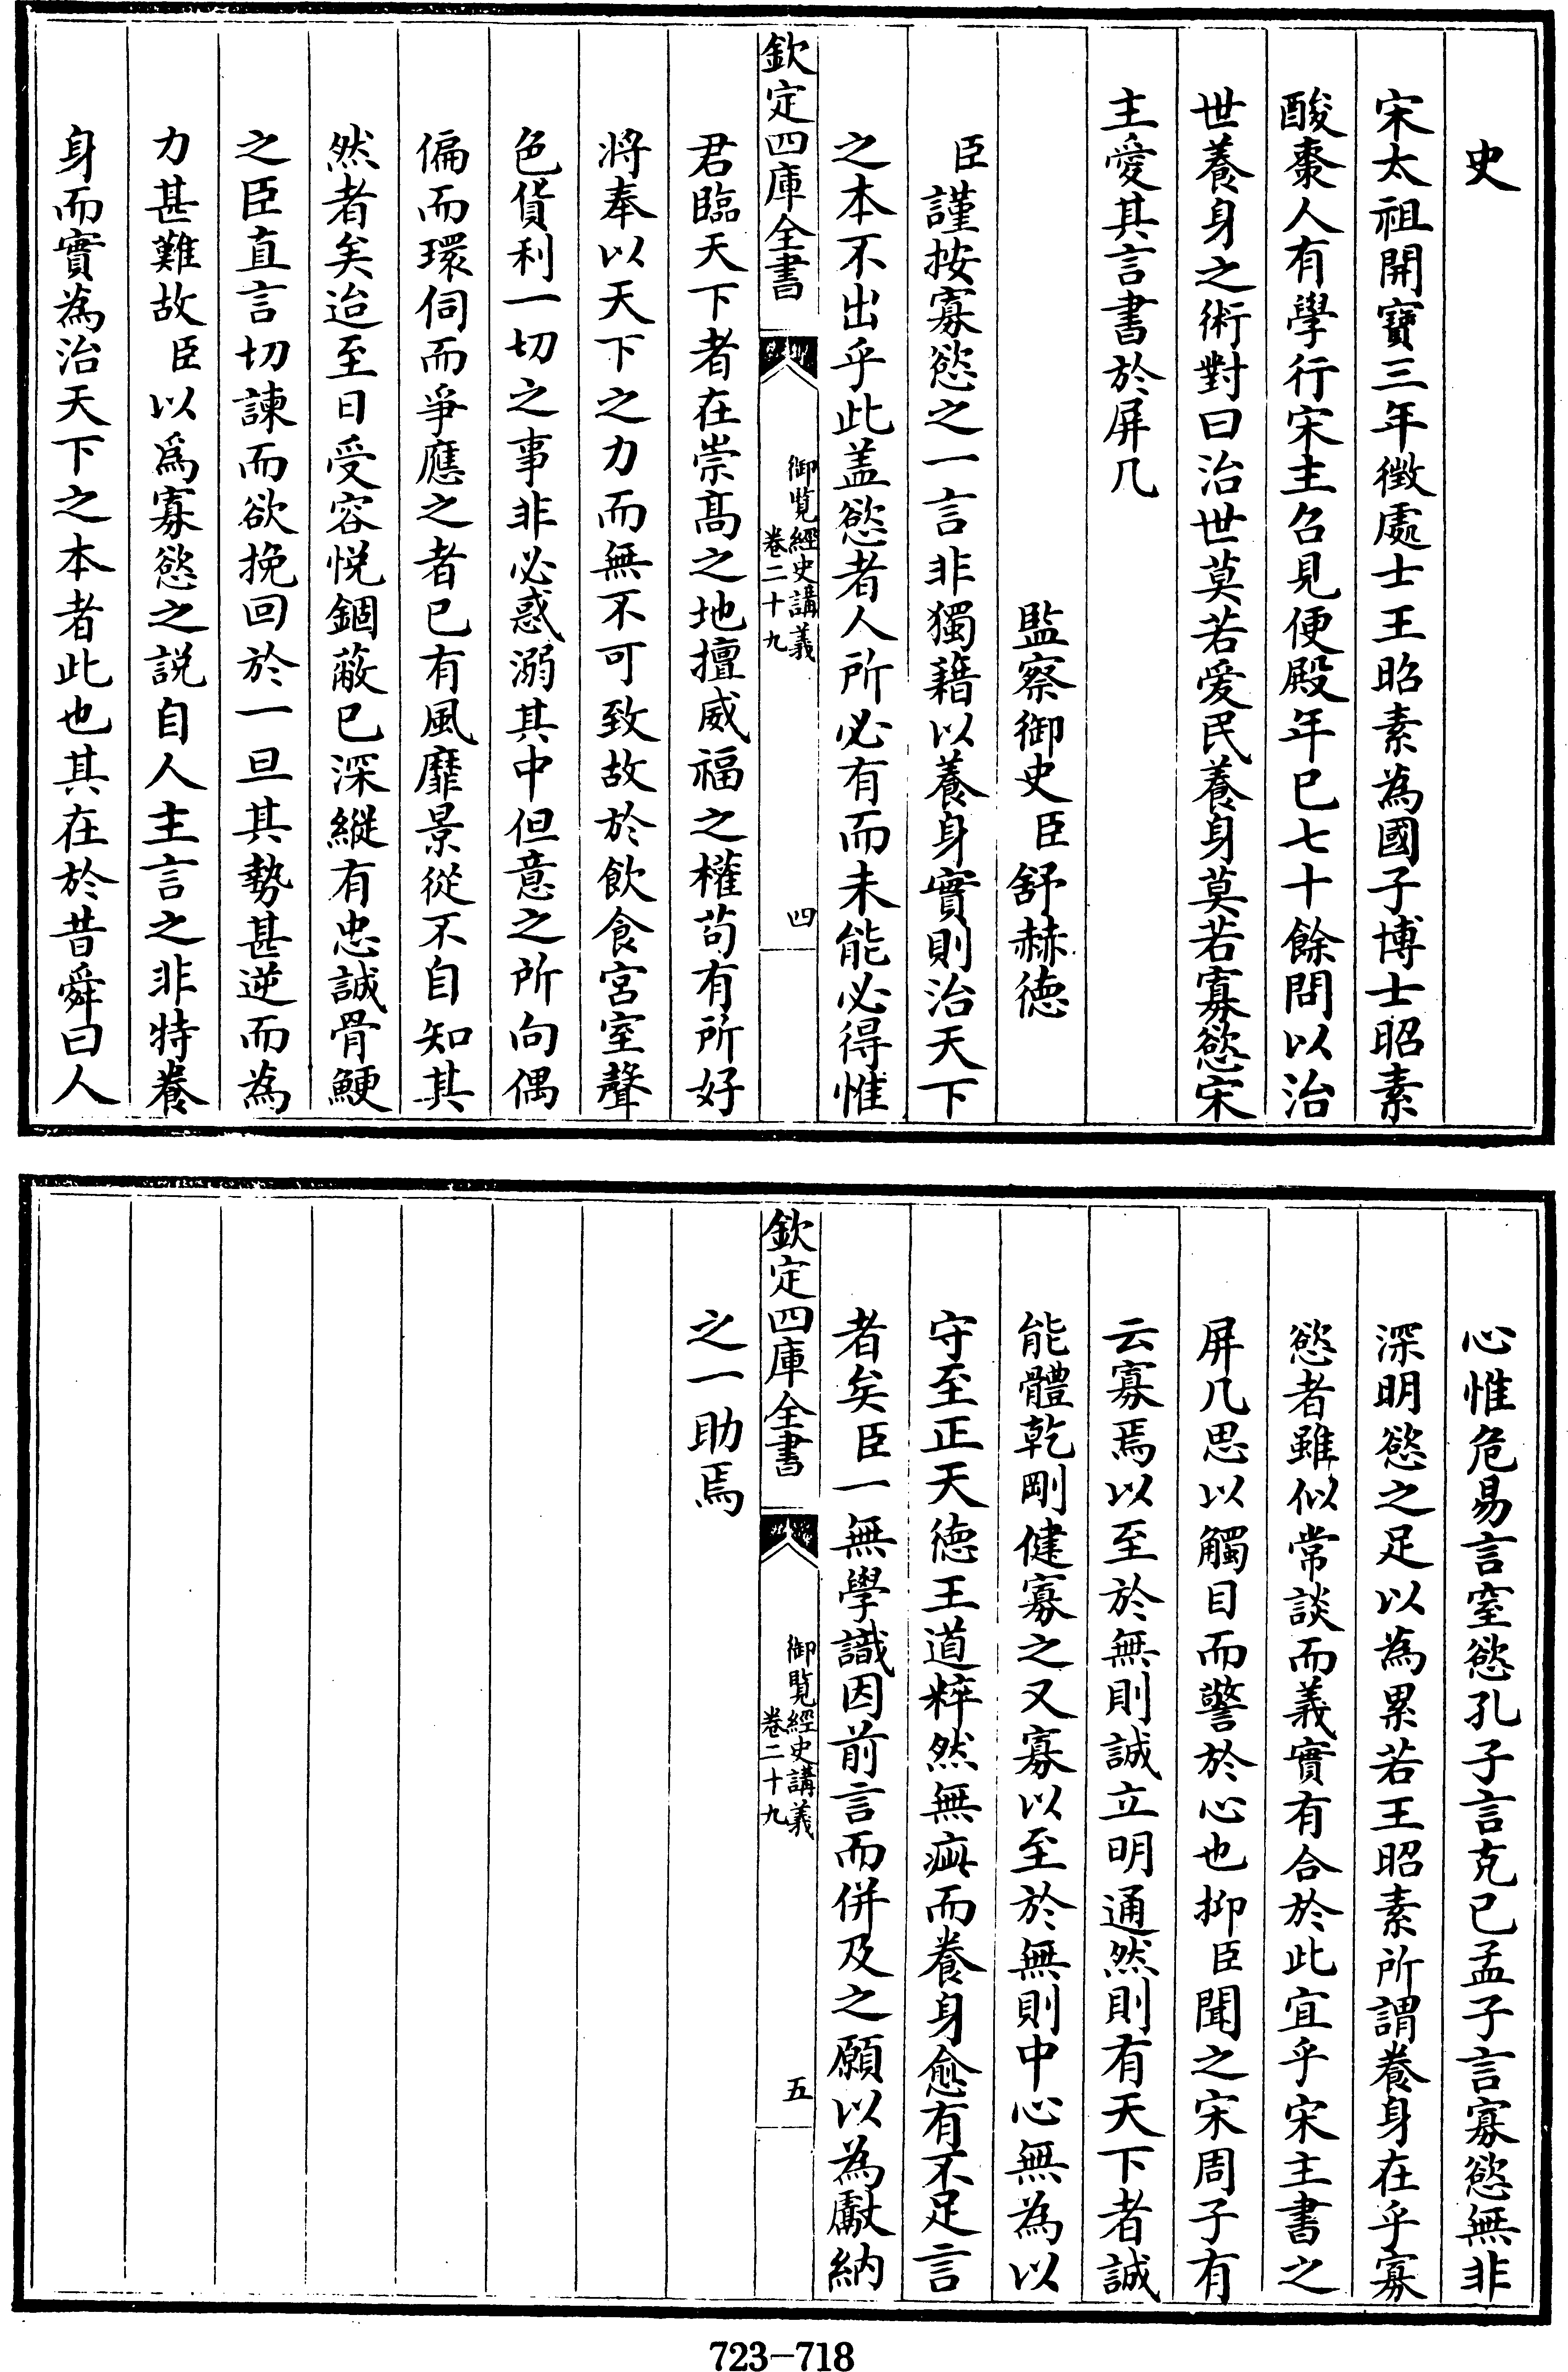 史
宋太祖開寶三年徵處士王昭素為國子博士昭素
酸棗人有學行宋主召見便殿年已七十餘問以治
世養身之術對曰治世莫若爱民養身莫若寡慾宋
主愛其言書於屏几
監察御史臣舒赫徳
臣謹按寡慾之一言非獨藉以養身實則治天下
之本不出乎此盖慾者人所必有而未能必得惟
欽定四庫全書
御覧經史講義
卷二十九
四
君臨天下者在崇髙之地擅威福之權苟有所好
將奉以天下之力而無不可致故於飲食宮室聲
色貨利一切之事非必惑溺其中但意之所向偶
偏而環伺而爭應之者已有風靡景從不自知其
然者矣迨至日受容悦錮蔽已深縱有忠誠骨鯁
之臣直言切諫而欲挽回於一旦其勢甚逆而為
力甚難故臣以爲寡慾之説自人主言之非特養
身而實為治天下之本者此也其在於昔舜曰人
心惟危易言窒慾孔子言克已孟子言寡慾無非
深明慾之足以為累若王昭素所謂養身在乎寡
慾者雖似常談而義實有合於此宜乎宋主書之
屏几思以觸目而警於心也抑臣聞之宋周子有
云寡焉以至於無則誠立明通然則有天下者誠
能體乾剛健寡之又寡以至於無則中心無為以
守至正天徳王道粹然無疵而養身愈有不足言
者矣臣一無學識因前言而併及之願以為獻納
欽定四庫全書
御覧經史講義
卷二十九
五
之一助焉
723-718